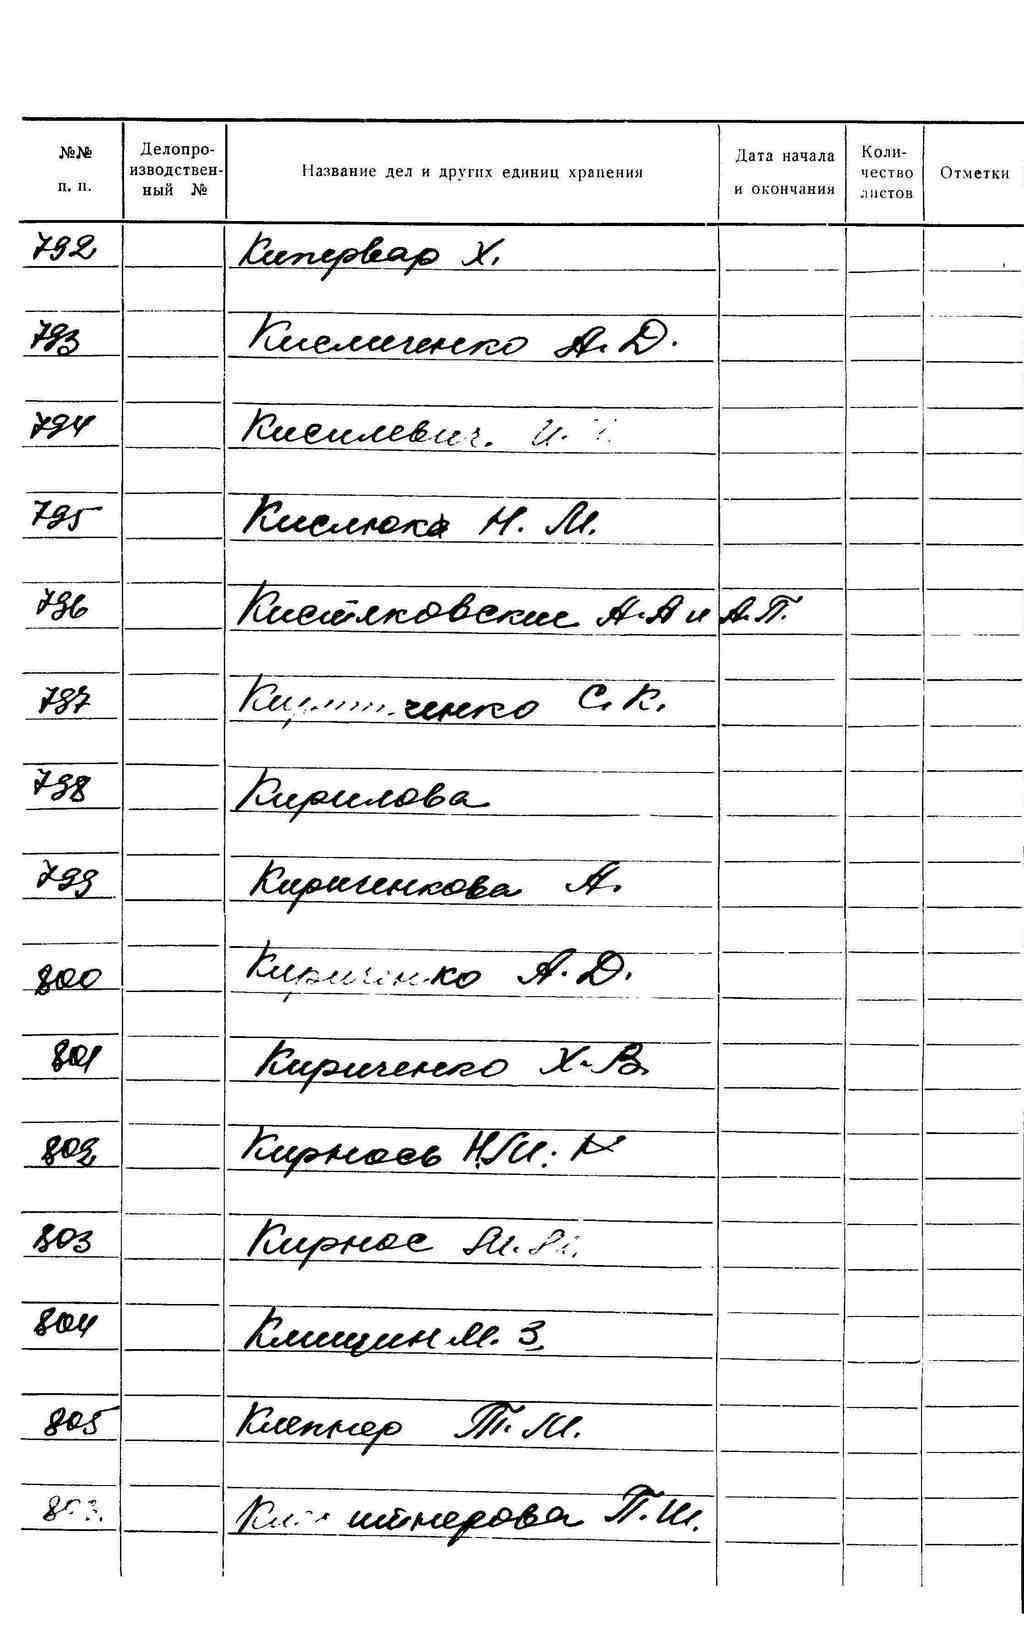 №№ п. п. Делопроизводственный № Название дел и других единиц хранения Дата начала и окончания Количество листов Отметки
792 Кипервар Х.
793 Кисличенко А. Д.
794 Кисилевич. И.
795 Кислюка Н. М.
796 Кистяковские А. А и А. П.
797 С. К.
798 Кирилова
799 Кириченкова А.
800 Кириченко А. Д.
801 Кириченко Х. В.
802 Кирносъ Н. И. К
803 Кирнос
804 Клищин М. З.
805 Клепнер Т. М.
П. Ш.